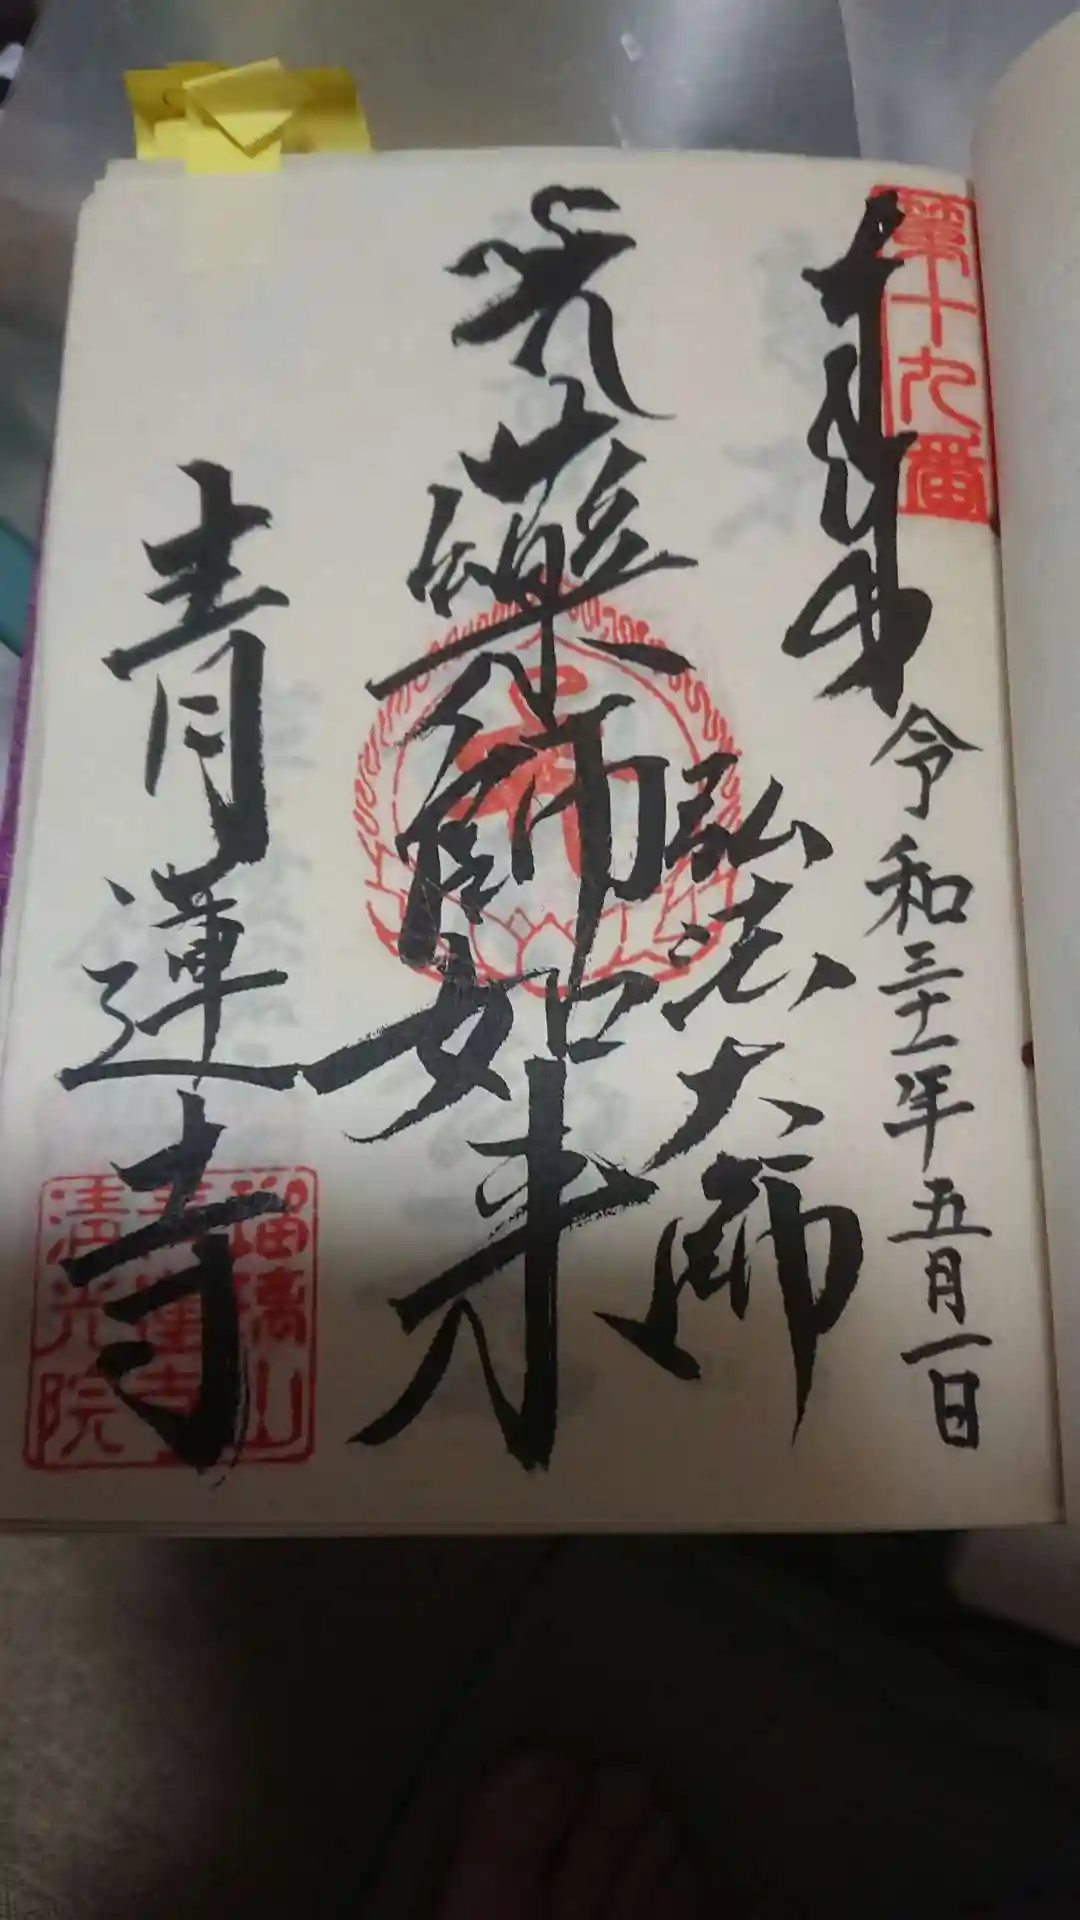 第十九番
奉拝
令和三十一年五月一日
弘法大師
薬師如来
青蓮寺
瑠璃山
青蓮寺
清光院